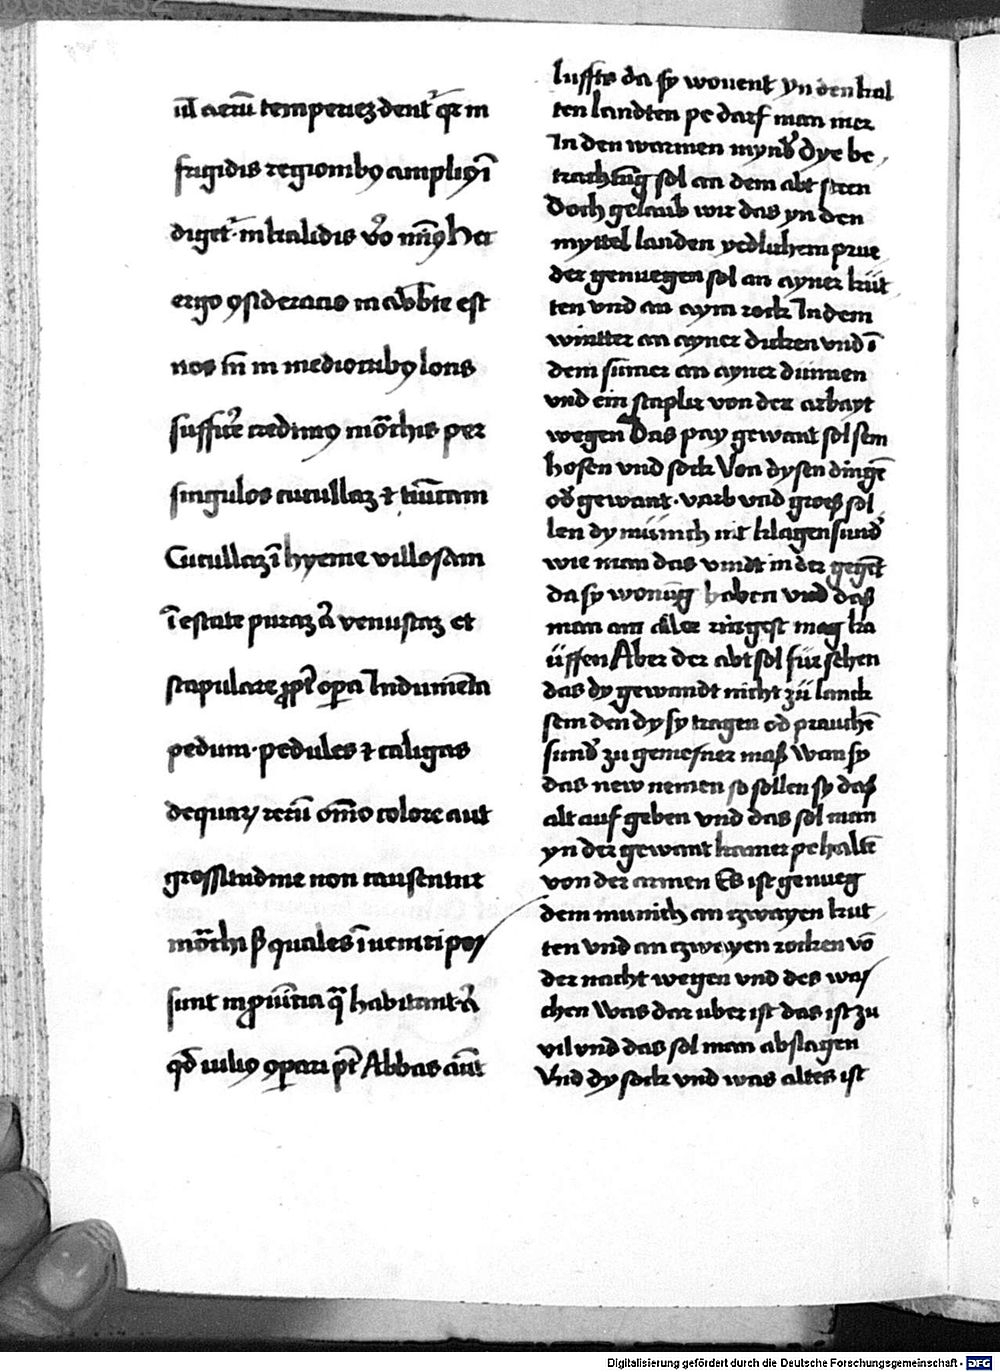 ul̄ aerū temperiez dent̾ qꝛ in
frigidis regionibꝰ ampliꝰ ī
diget̾ · in kalidis v̾o min̄ꝰ hec
ergo ꝯsideracio in abb̄te est
nos tn̄ in mediocribꝰ locis
suffic̾e credimꝰ mōchis per
singulos cucullaz ⁊ tūicam
Cucullaz ī hyeme villosam
ī estate puraz ā venustaz et
scapulare ꝓpt̾ oꝑa Indumēta
pedum · pedules ⁊ caligas
de quaꝝ rerū om̄iō colore aut
grossitudine non causentur
mōchi ß quales īueniri pos/
sunt in ꝓuī̄cia qͣ habitant · ā
qd̾ viliꝰ ꝯꝑari pt̄ Abbas aūt
luffts da sy wonent yn den kal
ten landten pe darf man mer
In den warmen mynd̾ Dye be
trachtūg sol an dem abt sten
Doch gelaub wir das yn den
myttel landen yedlichem prue
der genuegen sol an ayner kut
ten vnd an aym rock In dem
wintter an ayner dicken vnd ī
dem sumer an ayner dünnen
vnd ein scaplir von der arbayt
wegen Das pay gewant sol sein
hosen vnd sock Von dysen dingē
od̾ gewant · varb vnd gross sol
len dy münich nit klagen sund̾
wie man das vindt in der gegēt
da sy wonūg haben vnd das
man am aller ringest mag ka
üffen Aber der abt sol für sehen
das dy gewandt nicht zü lanck
sein den dy sy tragen od prauchē
sund̾ zu gemesner maß Wan sy
das new nemen so sollen sy daß
alt auf geben vnd das sol man
yn der gewant kamer pehaltē
von der armen Es ist genueg
dem munich an zwayen kut
ten vnd an czwayen rocken vō
der nacht wegen vnd des wa/
chen Was dar uber ist das ist zu
vil vnd das sol man abslagen
Vnd dy sock vnd was altes ist
Digitalisierung gefördert durch die Deutsche Forschungsgemeinschaft - DFG